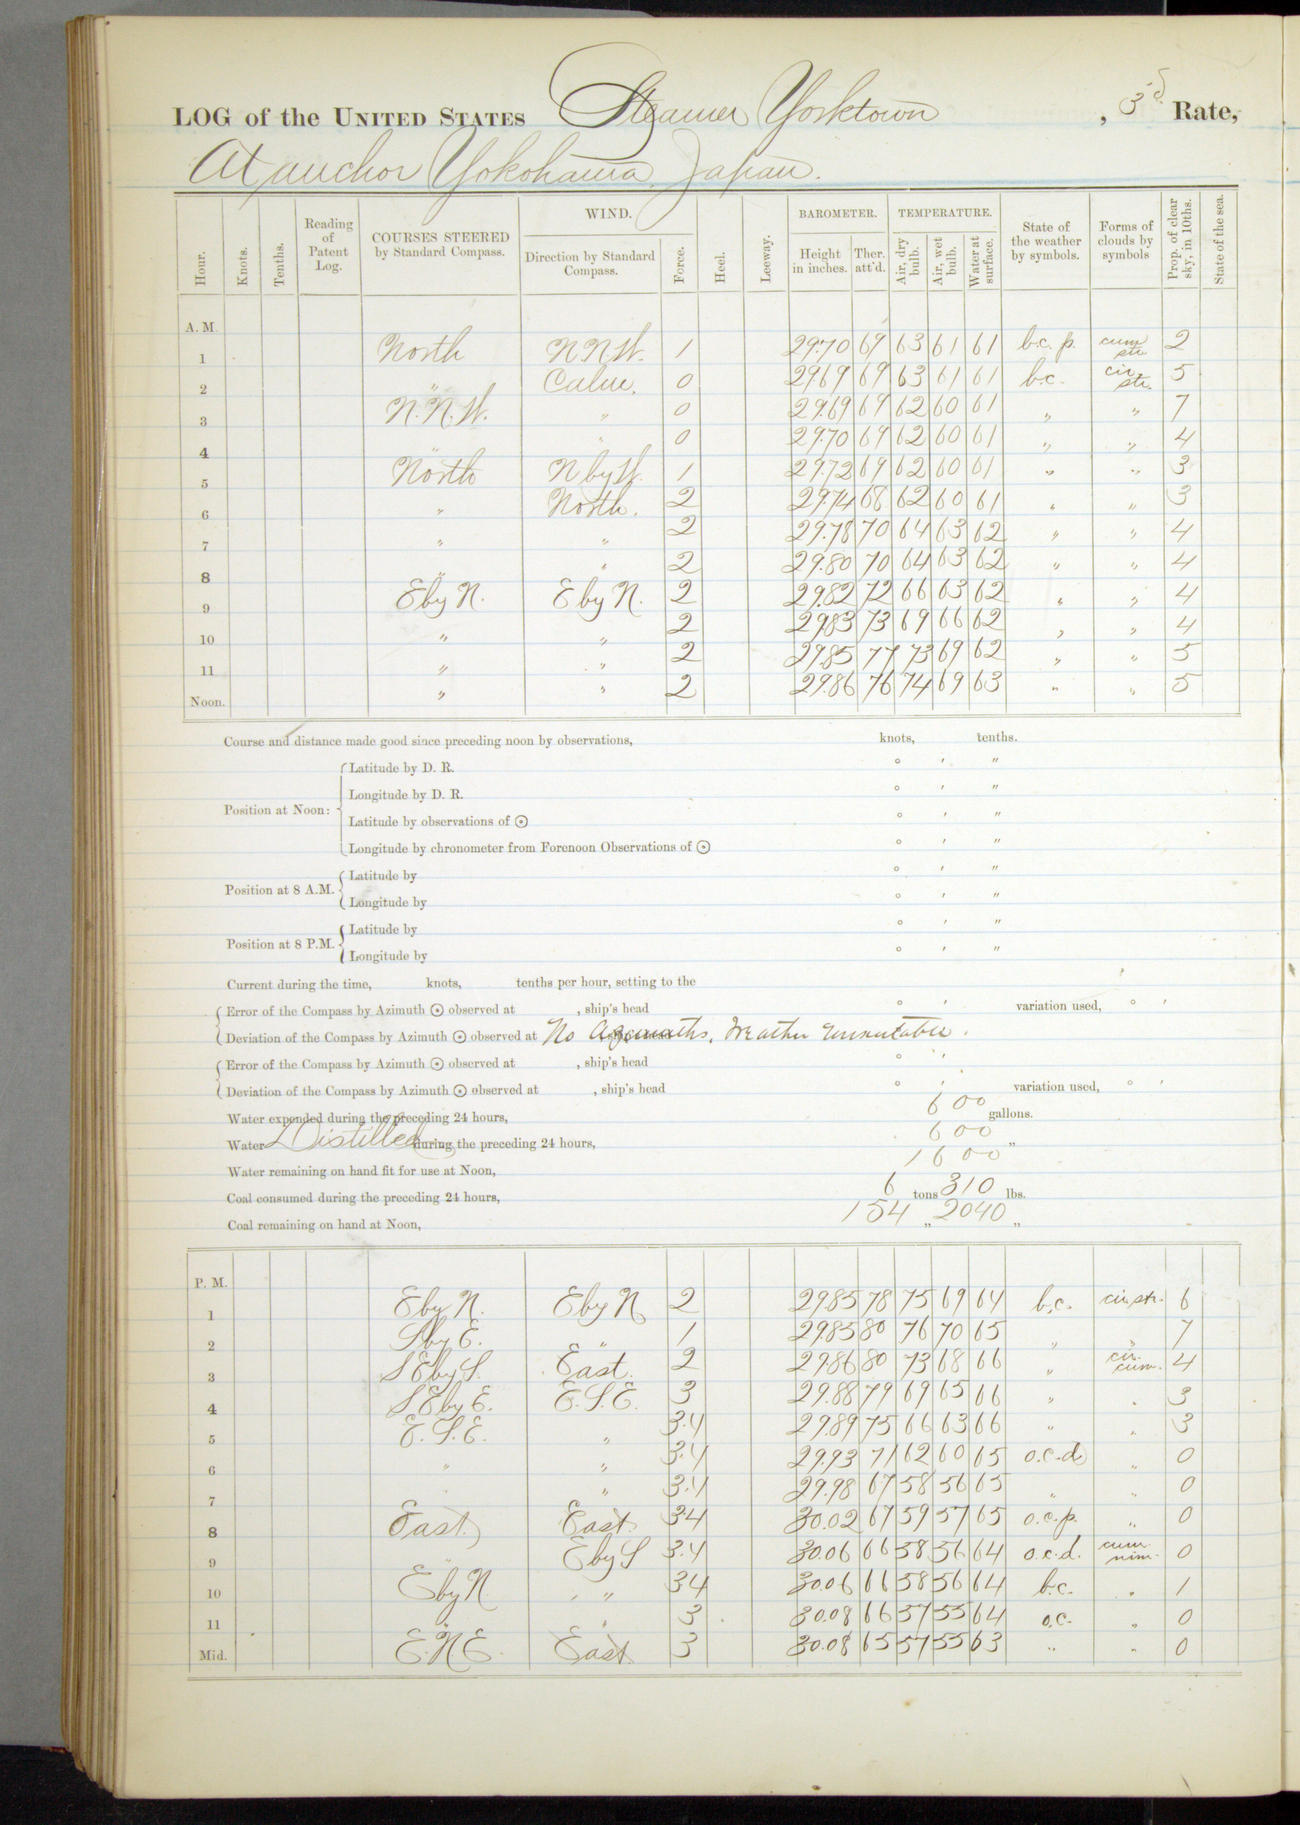 LOG of the UNITED STATES Steamer Yorktown, 3d Rate,
At anchor Yokohama, Japan.
Hour. Knots. Tenths. Reading of Patent Log. COURSES STEERED by Standard Compass. WIND. Direction by Standard Compass. Force. Heel. Leeway. BAROMETER. Height in inches. Ther. att'd. TEMPERATURE. Air, dry bulb. Air, wet bulb. Water at surface. State of the weather by symbols. Forms of clouds by symbols Prop. of clear sky, in 10ths. State of the sea.
A. M.
1 North N N W. 1 29.70 69 63 61 61 b.c. p. cum str 2
2 " Calm. 0 29.69 69 63 61 61 b.c. cir str. 5
3 N. N. W. " 0 29.69 69 62 60 61 " " 7
4 " " 0 29.70 69 62 60 61 " " 4
5 North N by W. 1 29.72 69 62 60 61 " " 3
6 " North. 2 29.74 68 62 60 61 " " 3
7 " " 2 29.78 70 64 63 62 " " 4
8 " " 2 29.80 70 64 63 62 " " 4
9 E by N. E by N. 2 29.82 72 66 63 62 " " 4
10 " " 2 29.83 73 69 66 62 " " 4
11 " " 2 29.85 77 73 69 62 " " 5
Noon. " " 2 29.86 76 74 69 63 " " 5
Course and distance made good since preceding noon by observations, knots, tenths.
Position at Noon: Latitude by D. R. ° ' "
Longitude by D. R. ° ' "
Latitude by observations of ☉ ° ' "
Longitude by chronometer from Forenoon Observations of ☉ ° ' "
Position at 8 A.M. Latitude by ° ' "
Longitude by ° ' "
Position at 8 P.M. Latitude by ° ' "
Longitude by ° ' "
Current during the time, knots, tenths per hour, setting to the
Error of the Compass by Azimuth ☉ observed at , ship's head ° ' variation used, ° '
Deviation of the Compass by Azimuth ☉ observed at No Azimuths. Weather unsuitable.
Error of the Compass by Azimuth ☉ observed at , ship's head ° '
Deviation of the Compass by Azimuth ☉ observed at , ship's head ° ' variation used, ° '
Water expended during the preceding 24 hours, 600 gallons.
Water Distilled during the preceding 24 hours, 600 "
Water remaining on hand fit for use at Noon, 1600
Coal consumed during the preceding 24 hours, 6 tons 310 lbs.
Coal remaining on hand at Noon, 154 " 2040 "
P. M.
1 E by N. E by N 2 29.85 78 75 69 64 b.c. cir str. 6
2 S by E. " 1 29.85 80 76 70 65 " " 7
3 S E by S. East. 2 29.86 80 73 68 66 " cir. cum. 4
4 S E by E. E. S. E. 3 29.88 79 69 65 66 " " 3
5 E. S. E. " 3.4 29.89 75 66 63 66 " " 3
6 " " 3.4 29.93 71 62 60 65 o.c.d " 0
7 " " 3.4 29.98 67 58 56 65 " " 0
8 East. East. 3.4 30.02 67 59 57 65 o.c.p. " 0
9 " E by S 3.4 30.06 66 58 56 64 o.c.d. cum nim. 0
10 E by N " " 3.4 30.06 66 58 56 64 b.c. " 1
11 " " 3 30.08 66 57 55 64 o.c. " 0
Mid. E. N E. East 3 30.08 65 57 55 63 " " 0